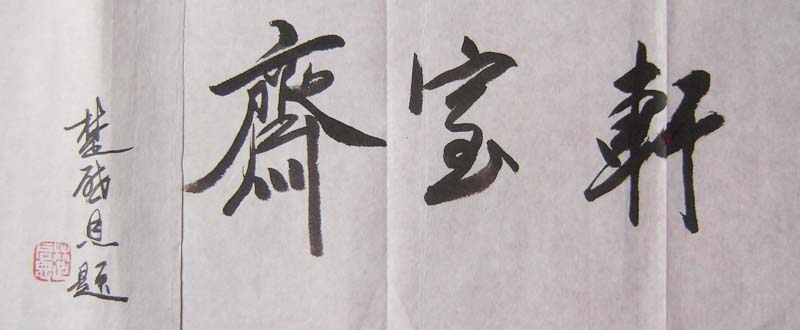 軒宝齋
楚啟恩題